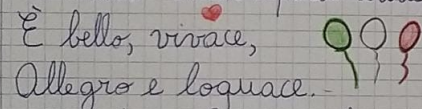 È bello, vivace,
Allegro e loquace.